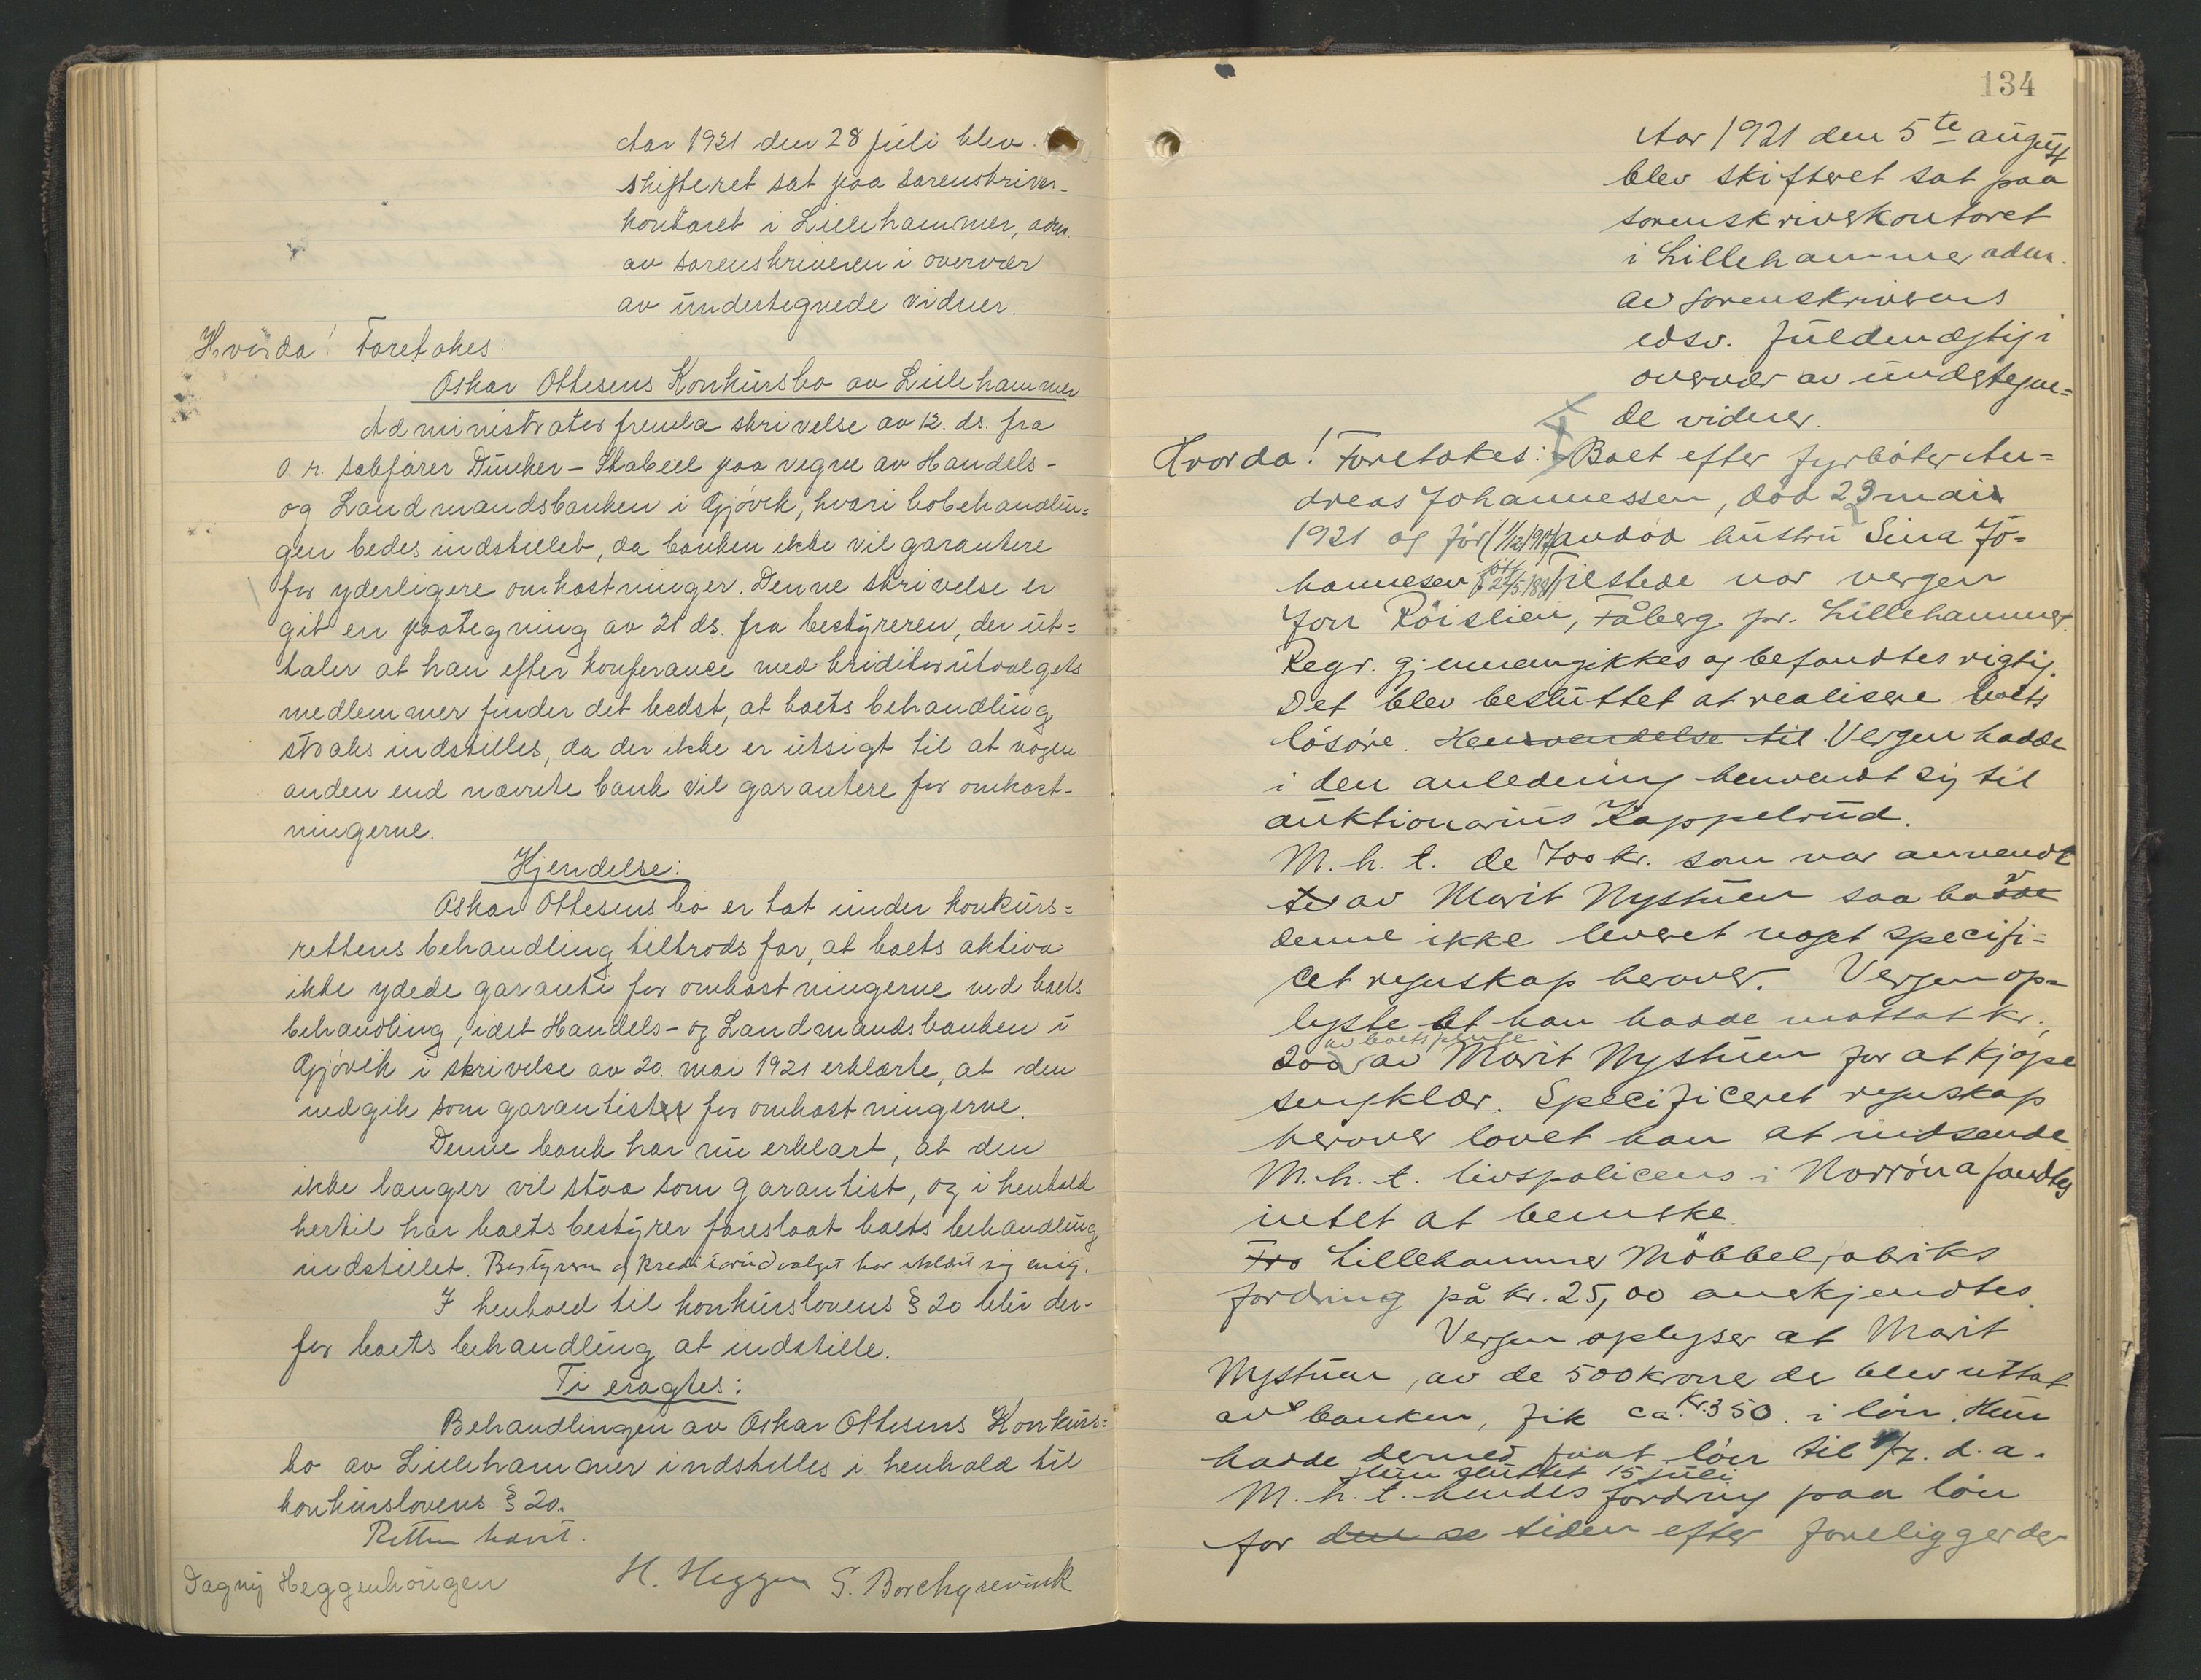 Aar 1921 den 28 juli blev
skifteret sat paa sorenskriver-
kontoret i Lillehammer, adm.
av sorenskriveren i overvær
av undertegnede vidner.
Hvorda! Foretokes:
Oskar Ottesens Konkursbo av Lillehammer
Administrator fremla skrivelse av 12. ds. fra
o. r. sakfører Duncker-Stabell paa vegne av Handels-
og Landmandsbanken i Gjøvik, hvori bobehandlin=
gen bedes indstillet, da banken ikke vil garantere
for yderligere omkostninger. Denne skrivelse er
git en paategning av 21 ds. fra bestyreren, der ut=
taler at han efter konferance med kreditorutvalgets
medlemmer finder det bedst, at boets behandling
straks indstilles, da der ikke er utsigt til at nogen
anden end nævnte bank vil garantere for omkost-
ningerne.
Kjendelse:
Oskar Ottesens bo er tat under konkurs=
rettens behandling tiltrods for, at boets aktiva
ikke ydede garanti for omkostningerne ved boets
behandling, idet Handels- og Landmandsbanken i
Gjøvik i skrivelse av 20. mai 1921 erklærte, at den
indgik som garantist for omkostningerne.
Denne bank har nu erklært, at den
ikke længer vil staa som garantist, og i henhold
hertil har boets bestyrer foreslaat boets behandling
indstillet. Bestyreren og kreditorudvalget har erklært sig enig.
I henhold til konkurslovens § 20 blir der-
for boets behandling at indstille.
Ti eragtes:
Behandlingen av Oskar Ottesens Konkurs=
bo av Lillehammer indstilles i henhold til
konkurslovens § 20.
Retten hævet.
Dagny Heggenhougen H. Heggen S. Borchgrevink
134
Aar 1921 den 5te august
blev skifteret sat paa
sorenskriverkontoret
i Lillehammer adm.
av sorenskriverens
edsv. fuldmægtig i
overvær av undertegne=
de vidner.
Hvorda! Foretokes: Boet efter fyrbøter An=
dreas Johannessen, død 23 mai
1921 og før (1/12 1917) avdød hustru Sina Jo=
hannesen født 27/5 188 Tilstede var vergen
Jon Røislien, Fåberg pr. Lillehammer.
Regr. gjennemgikkes og befandtes rigtig.
Det blev besluttet at realisere boets
løsøre. Henvendelse til Vergen hadde
i den anledning henvendt sig til
auktionarius Kappelrud.
M. h. t. de 700 kr. som var anvendt
av Marit Nystuen saa hadde
denne ikke leveret noget specifi=
cet regnskap herover. Vergen op=
lyste at han hadde mottat kr.
av boets penge
200 av Marit Nystuen for at kjøpe
sengklær. Specificeret regnskap
herover lovet han at indsende
M. h. t. livspolicens i Norrøna fandtes
intet at bemerke.
Fra Lillehammer Møbbelfabriks
fordring på kr. 25,00 anerkjendtes.
Vergen oplyser at Marit
Nystuen, av de 500 krone der blev uttat
av banken, fik ca. kr. 350 i løn. Hun
hadde dermed faat løn til 1/7. d. a.
Hun sluttet 15 juli
M. h. t. hendes fordring paa løn
for den se tiden efter foreligger der